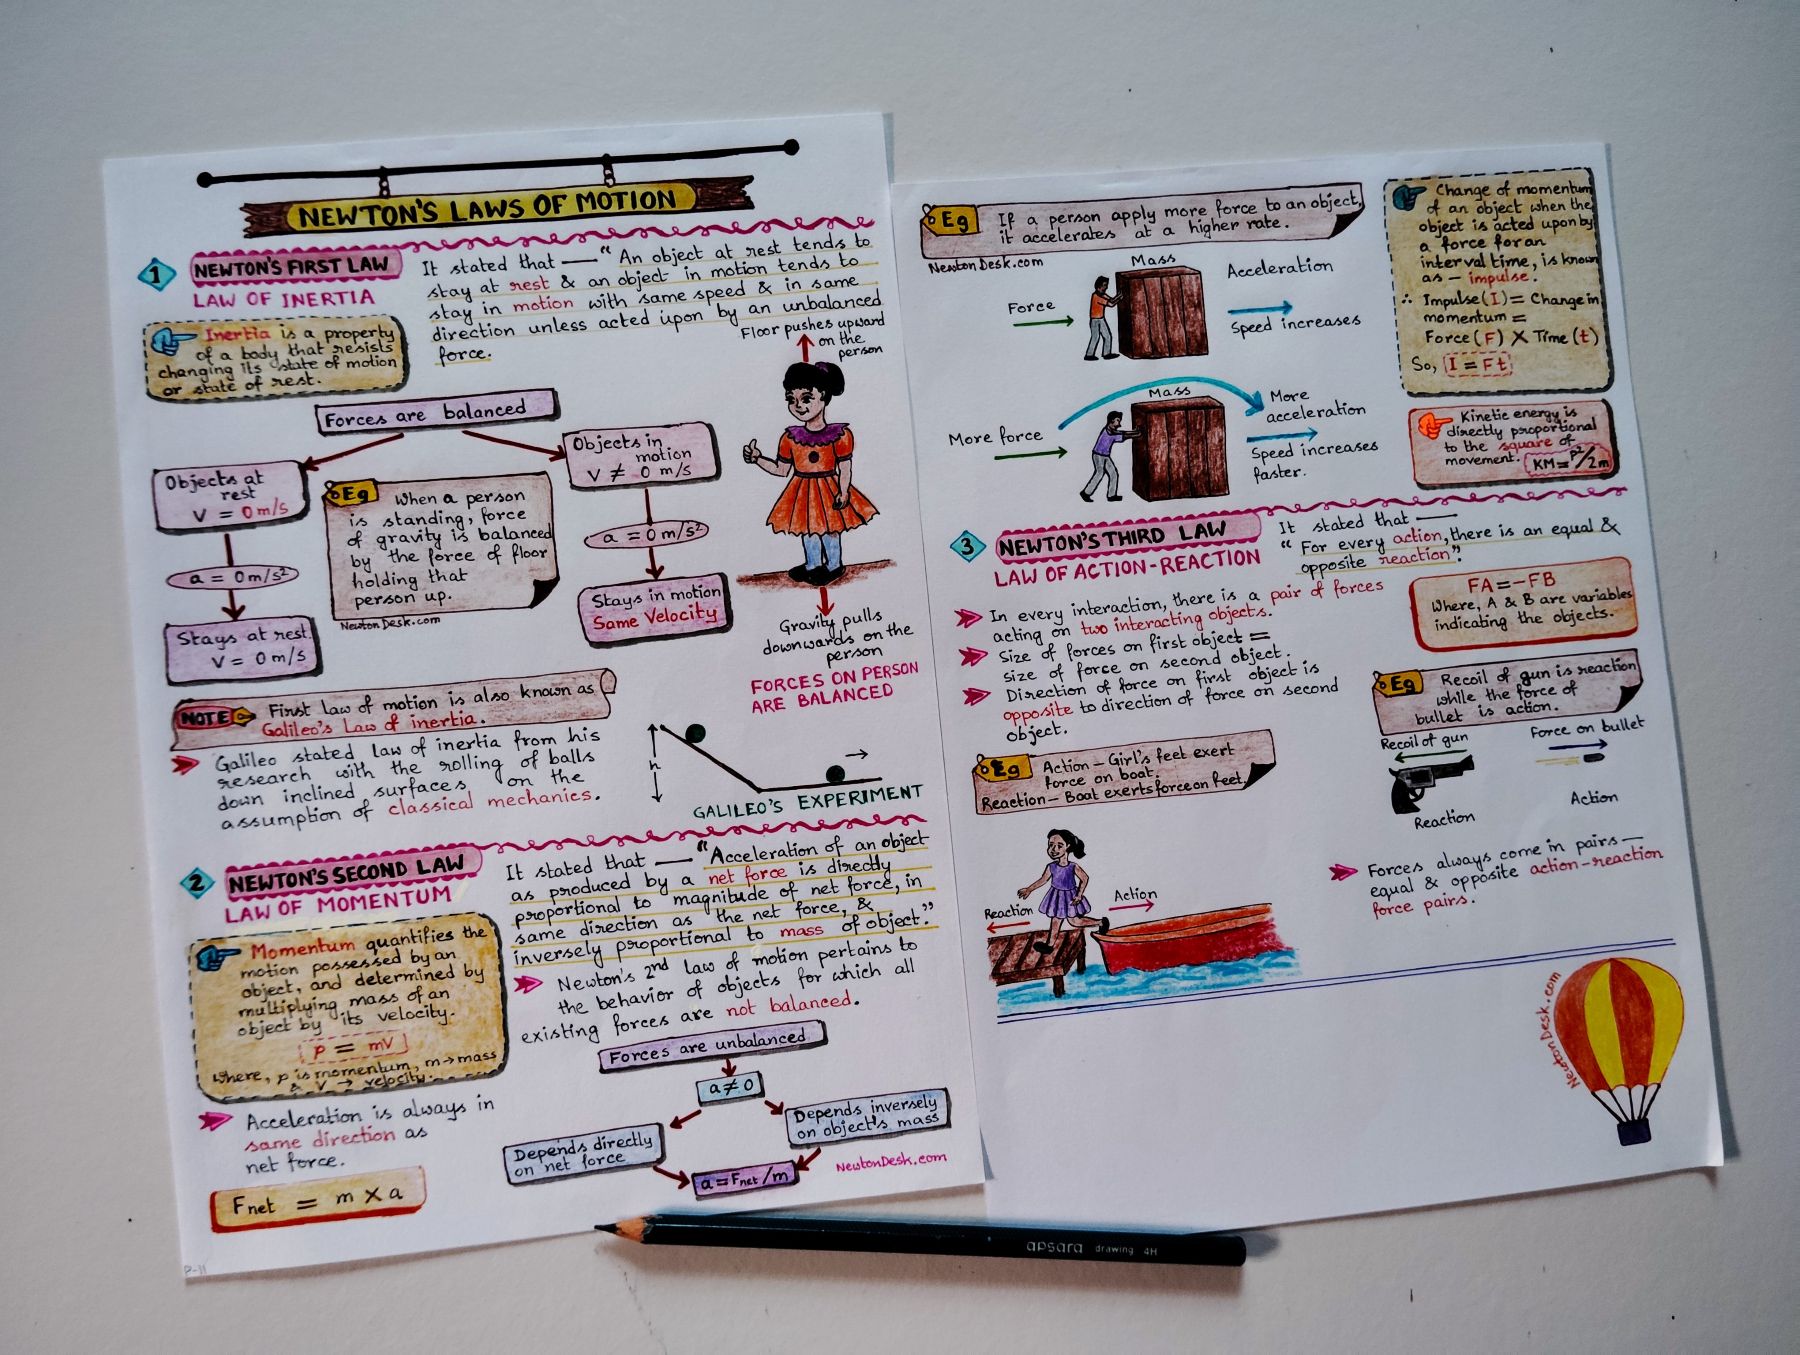 NEWTON'S LAWS OF MOTION
1
NEWTON'S FIRST LAW
LAW OF INERTIA
It stated that — "An object at rest tends to
stay at rest & an object in motion tends to
stay in motion with same speed & in same
direction unless acted upon by an unbalanced
force.
Inertia is a property
of a body that resists
changing its state of motion
or state of rest.
Floor pushes upward
on the
person
Forces are balanced
Objects at
rest
V = 0 m/s
a = 0 m/s²
Stays at rest
V = 0 m/s
Eg When a person
is standing, force
of gravity is balanced
by the force of floor
holding that
person up.
NewtonDesk.com
Objects in
motion
V ≠ 0 m/s
a = 0 m/s²
Stays in motion
Same Velocity
Gravity pulls
downwards on the
person
FORCES ON PERSON
ARE BALANCED
NOTE First law of motion is also known as
Galileo's Law of inertia.
Galileo stated law of inertia from his
research with the rolling of balls
down inclined surfaces on the
assumption of classical mechanics.
h
GALILEO'S EXPERIMENT
2
NEWTON'S SECOND LAW
LAW OF MOMENTUM
It stated that — "Acceleration of an object
as produced by a net force is directly
proportional to magnitude of net force, in
same direction as the net force, &
inversely proportional to mass of object."
Momentum quantifies the
motion possessed by an
object, and determined by
multiplying mass of an
object by its velocity.
p = mV
where, p is momentum, m → mass
& V → velocity.
Newton's 2nd law of motion pertains to
the behavior of objects for which all
existing forces are not balanced.
Acceleration is always in
same direction as
net force.
Fnet = m × a
Forces are unbalanced
a ≠ 0
Depends directly
on net force
Depends inversely
on object's mass
a = Fnet/m
NewtonDesk.com
P-11
Eg If a person apply more force to an object,
it accelerates at a higher rate.
NewtonDesk.com
Mass
Force
Acceleration
Speed increases
Mass
More force
More
acceleration
Speed increases
faster.
Change of momentum
of an object when the
object is acted upon by
a force for an
interval time, is known
as – impulse.
∴ Impulse (I) = Change in
momentum =
Force (F) × Time (t)
So, I = Ft
Kinetic energy is
directly proportional
to the square of
movement. KM = P²/2m
3
NEWTON'S THIRD LAW
LAW OF ACTION-REACTION
It stated that —
"For every action, there is an equal &
opposite reaction".
In every interaction, there is a pair of forces
acting on two interacting objects.
Size of forces on first object =
size of force on second object.
Direction of force on first object is
opposite to direction of force on second
object.
FA = -FB
Where, A & B are variables
indicating the objects.
Eg Recoil of gun is reaction
while the force of
bullet is action.
Recoil of gun
Force on bullet
Reaction
Action
Eg Action – Girl's feet exert
force on boat.
Reaction – Boat exerts force on feet.
Reaction
Action
Forces always come in pairs —
equal & opposite action-reaction
force pairs.
NewtonDesk.com
apsara drawing 4H